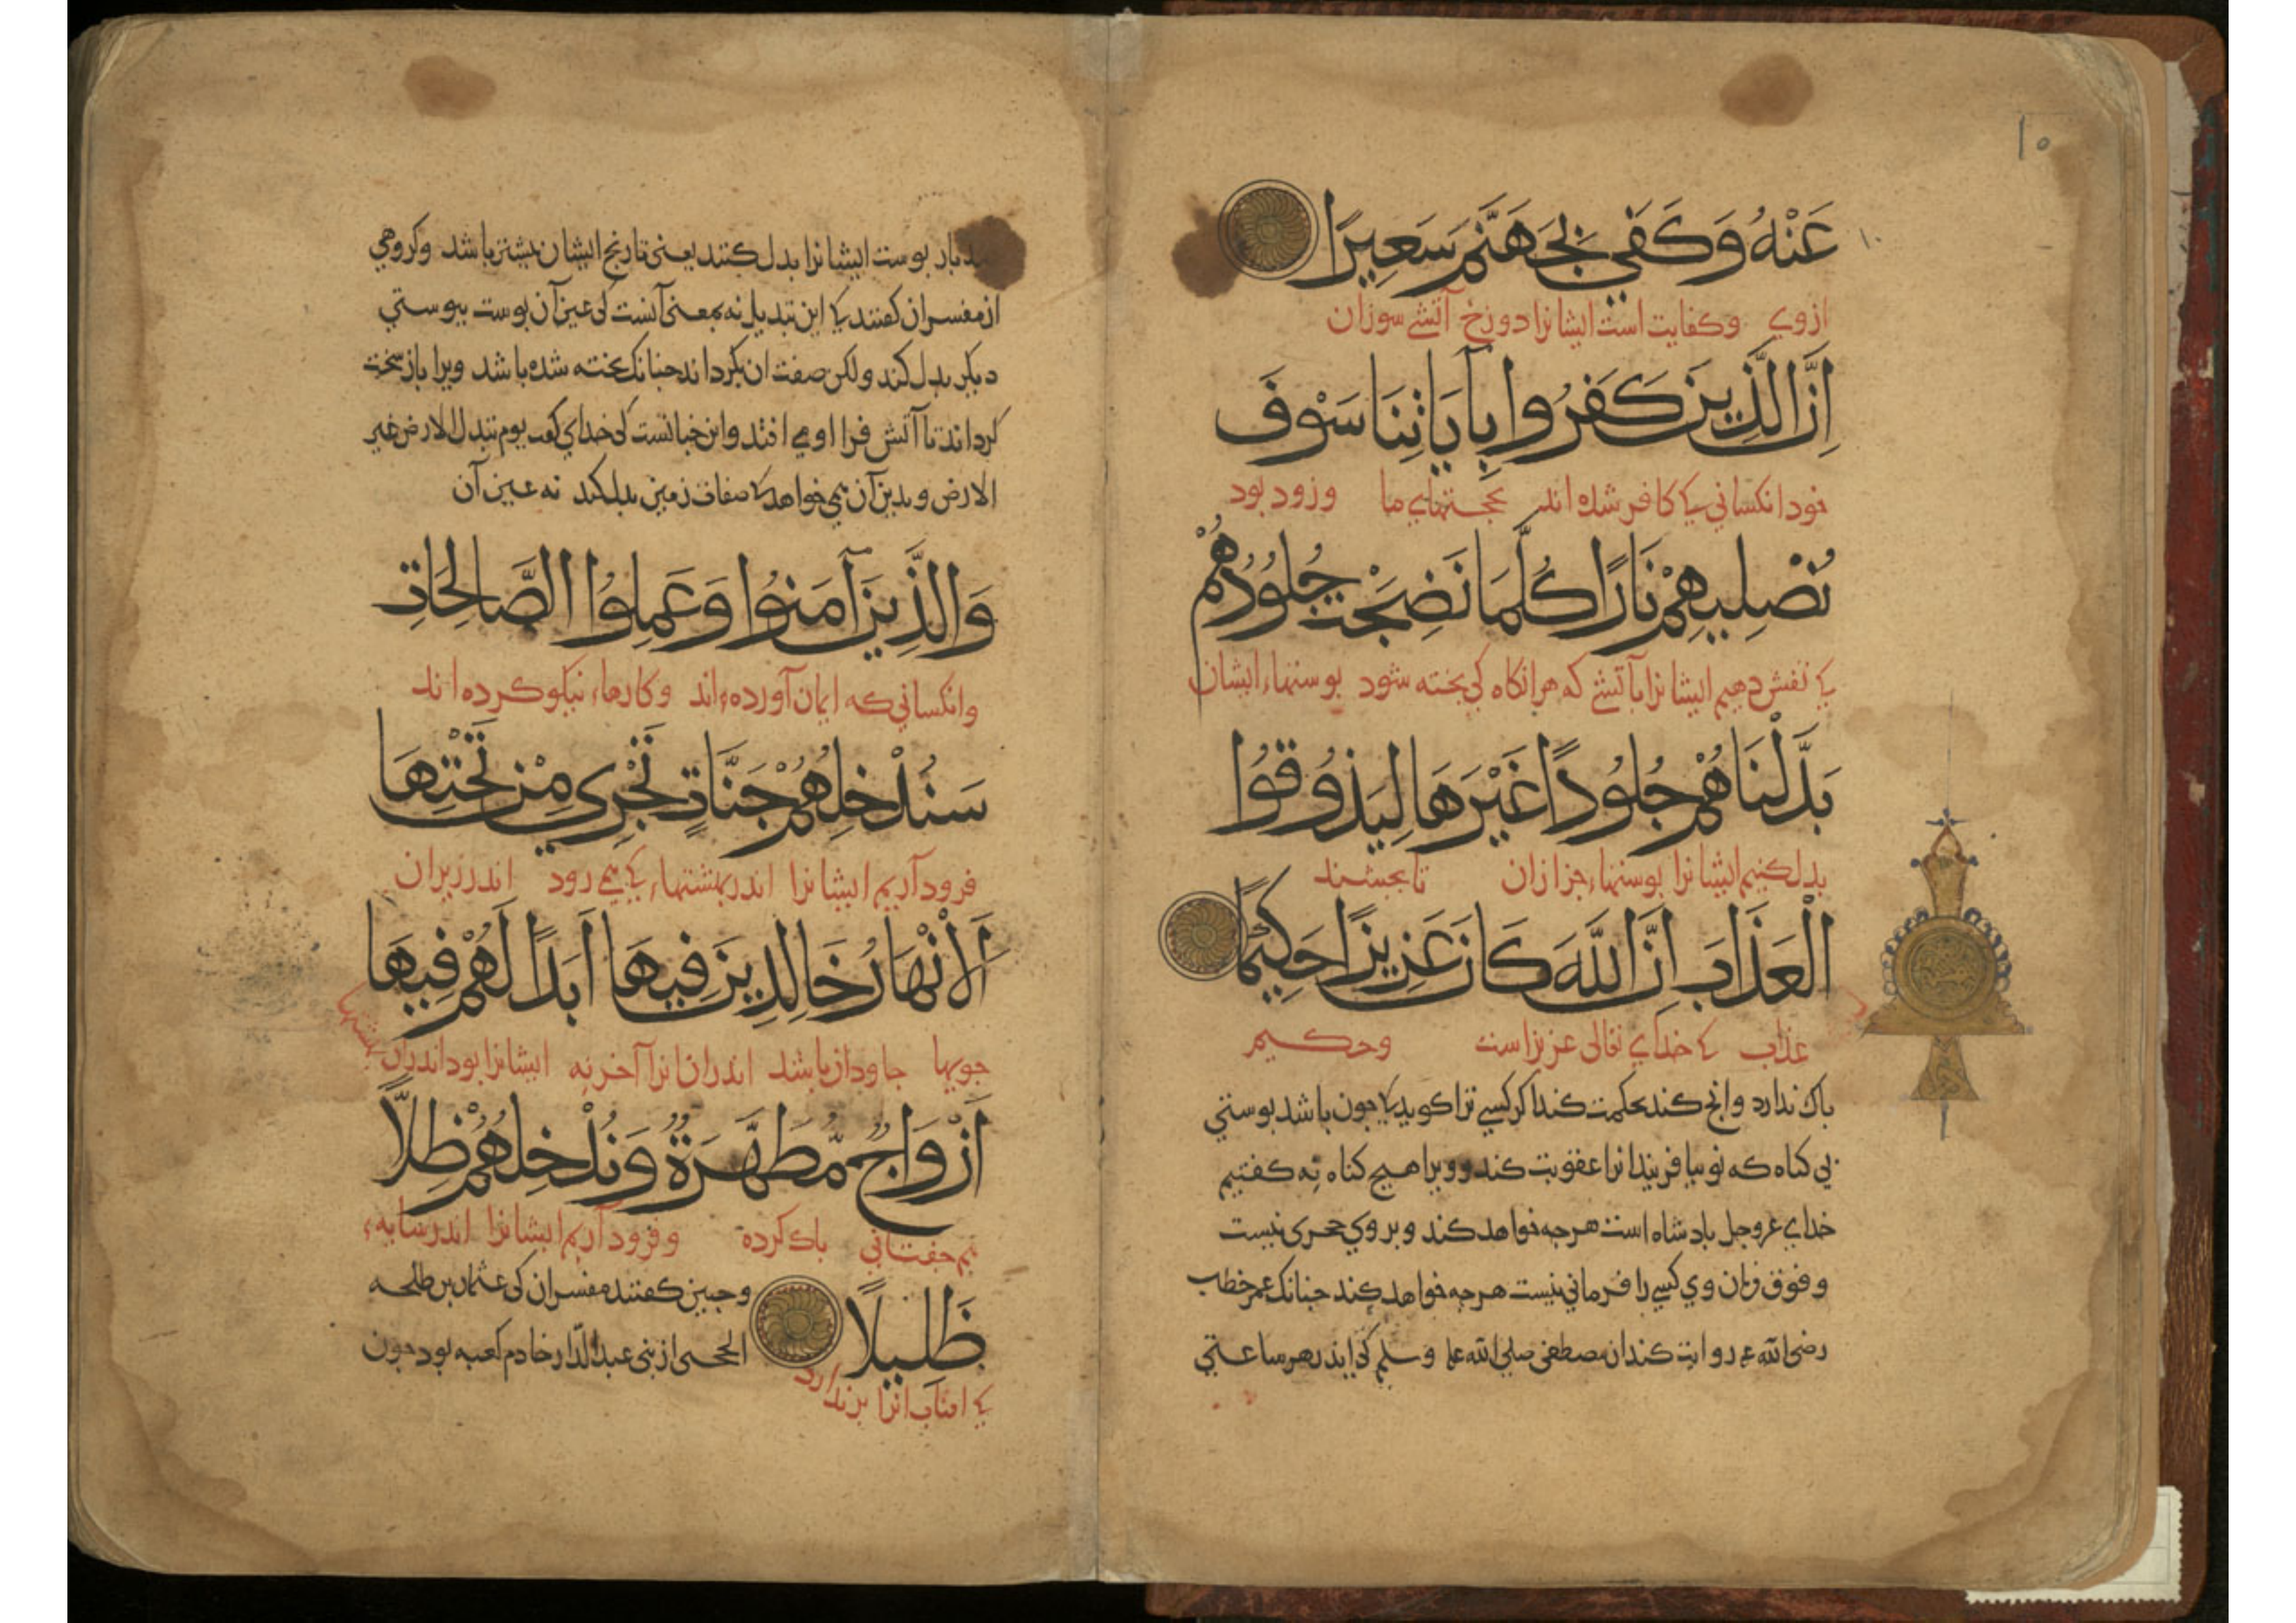 ١٠
عَنْهُ وَكَفَي بِجَهَنَّمَ سَعِيرًا
ازوي وكفايت است ايشانرا دوزخ آتشي سوزان
اِنَّ الَّذِينَ كَفَرُوا بِآيَاتِنَا سَوْفَ
خود انكساني كي كافر شده اند بحجتهاي ما وزود بود
نُصْلِيهِمْ نَارًا كُلَّمَا نَضِجَتْ جُلُودُهُمْ
كي تفش دهيم ايشانرا بآتشي كه هرانكاه كي بخته شود بوستهاء ايشان
بَدَّلْنَاهُمْ جُلُودًا غَيْرَهَا لِيَذُوقُوا
بدل كنيم ايشانرا بوستهاء جزازان تا بجشند
الْعَذَابَ اِنَّ اللَّهَ كَانَ عَزِيزًا حَكِيمًا
عذاب كي خداي تعالى عزيز است وحكيم
باك ندارد وانج كند بحكمت كند اكر كسي ترا كويد كي جون باشد بوستي
بي كناه كه نو بيافريند انرا عقوبت كند وويرا هيج كناه نه كفتيم
خداي عزوجل بادشاه است هرجه خواهد كند وبروي حجري نيست
وفوق فرمان وي كسي را فرماني نيست هرجه خواهد كند جنانك عمر خطاب
رضي الله عنه روايت كند از مصطفى صلى الله عليه وسلم كي اندر هر ساعتي
صد بار بوست ايشانرا بدل كنند يعني تا رنج ايشان بيشتر باشد وكروهي
از مفسران كفتند كي اين تبديل نه بمعنى آنست كي عين آن بوست ببوستي
ديكر بدل كند ولكن صفت ان بكرداند جنانك بخته شده باشد ويرا باز سخت
كرداند تا آتش فرا اومي افتد واين جنانست كي خداي كفت يوم تبدل الارض غير
الارض وبدين آن مي خواهد كي صفات زمين بدل كند نه عين آن
وَالَّذِينَ آمَنُوا وَعَمِلُوا الصَّالِحَاتِ
وانكساني كه ايمان آورده اند وكارهاء نيكو كرده اند
سَنُدْخِلُهُمْ جَنَّاتٍ تَجْرِي مِنْ تَحْتِهَا
فرود آريم ايشانرا اندر بهشتهاء كي مي رود اندر زيران
اَلْاَنْهَارُ خَالِدِينَ فِيهَا اَبَدًا لَهُمْ فِيهَا
جويها جاودان باشند اندران انرا آخر نه ايشانرا بود اندران بهشتها
اَزْوَاجٌ مُّطَهَّرَةٌ وَنُدْخِلُهُمْ ظِلاًّ
هم جفتاني باك كرده وفرود آريم ايشانرا اندر سايه
ظَلِيلاً وجنين كفتند مفسران كي عثمان بن طلحه
الحجبي از بني عبد الدار خادم كعبه بود جون
كي افتاب انرا برندارد